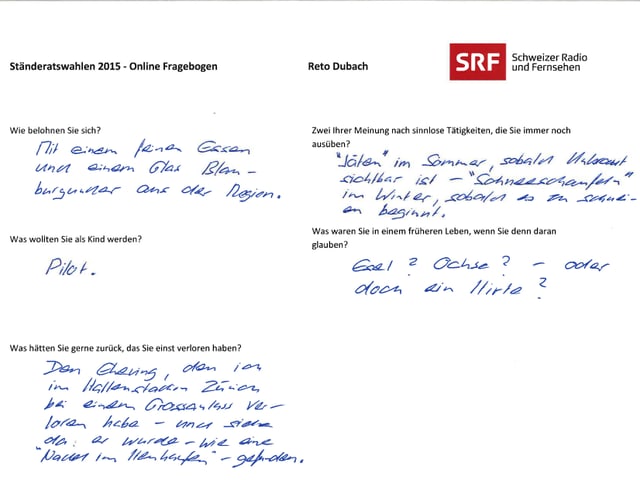 Ständeratswahlen 2015 - Online Fragebogen
Reto Dubach
SRF Schweizer Radio
und Fernsehen
Wie belohnen Sie sich?
Mit einem feinen Essen
und einem Glas Blau-
burgunder aus der Region.
Was wollten Sie als Kind werden?
Pilot.
Was hätten Sie gerne zurück, das Sie einst verloren haben?
Den Ehering, den ich
im Hallenstadion Zürich
bei einem Grossanlass ver-
loren habe - und siehe
da: er wurde - wie eine
"Nadel im Heuhaufen" - gefunden.
Zwei Ihrer Meinung nach sinnlose Tätigkeiten, die Sie immer noch
ausüben?
"Jäten" im Sommer, sobald Unkraut
sichtbar ist - "Schneeschaufeln"
im Winter, sobald es zu schnei-
en beginnt.
Was waren Sie in einem früheren Leben, wenn Sie denn daran
glauben?
Esel? Ochse? - oder
doch ein Hirte?